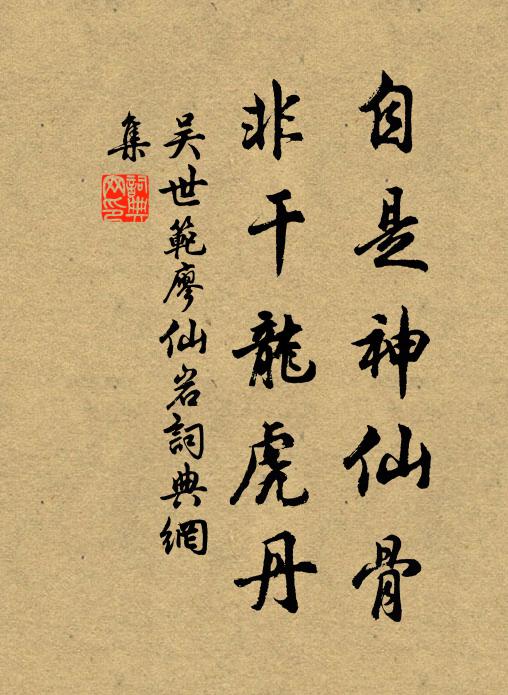 自是神仙骨
非干龍虎丹
吴世範廖仙岩詞典網
集
詞典
网印